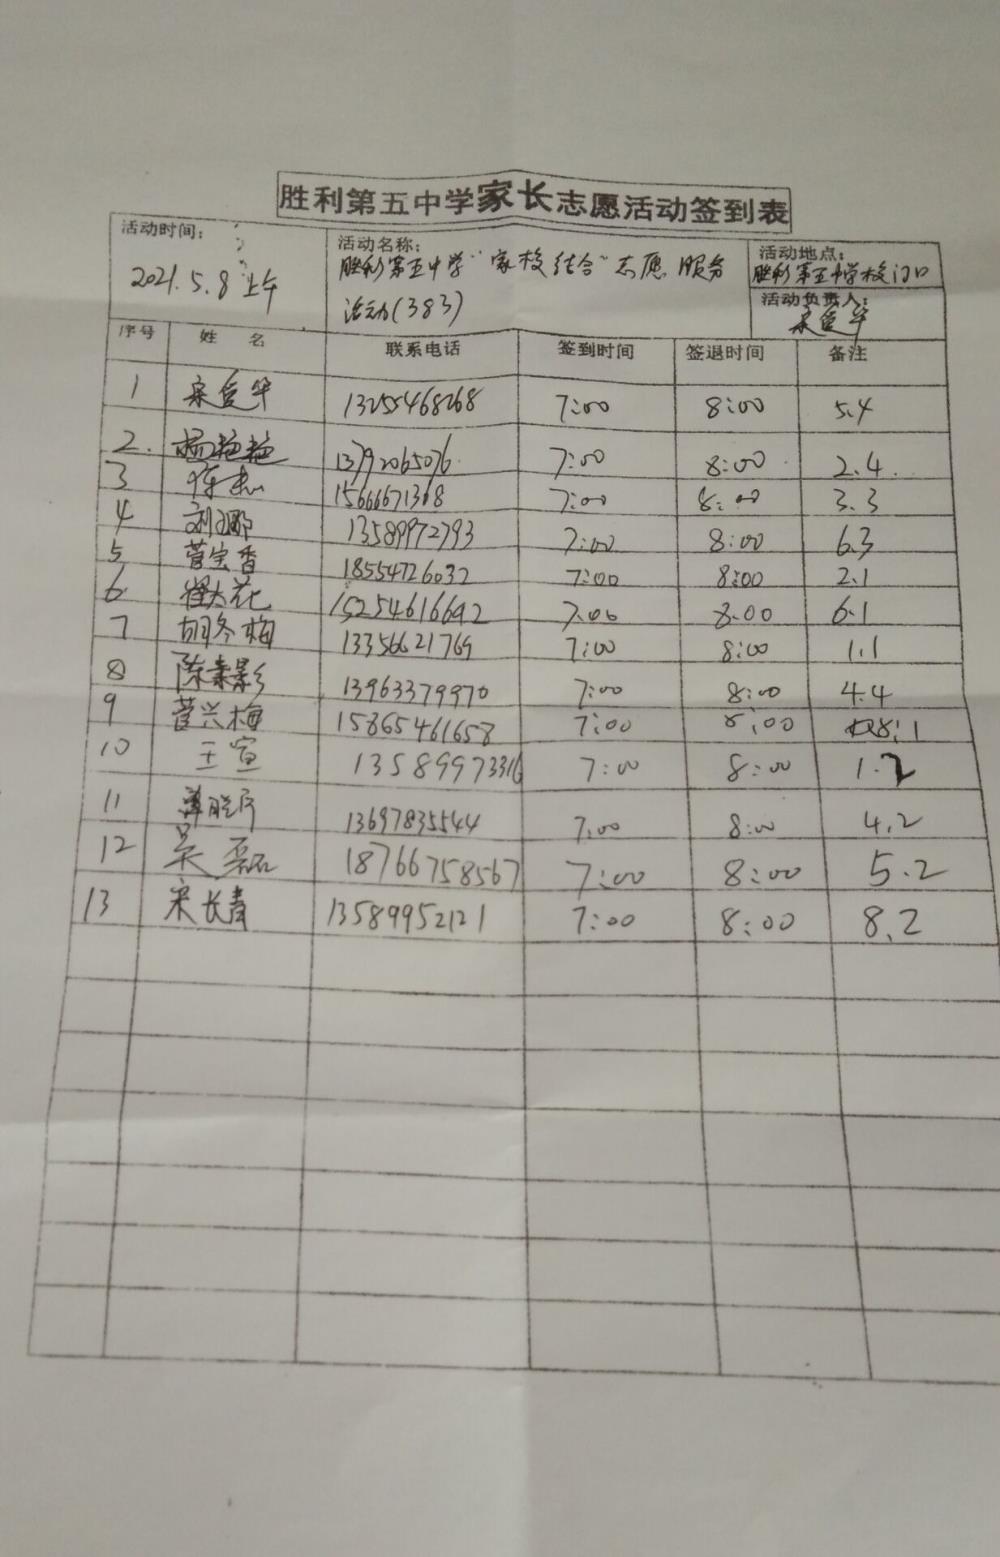 胜利第五中学家长志愿活动签到表
活动时间: 活动名称: 活动地点:
2021.5.8上午 胜利第五中学“家校结合”志愿服务 胜利第五中学校门口
活动(383) 活动负责人:
序号 姓名 联系电话 签到时间 签退时间 备注
1 13255468268 7:00 8:00 5.4
2. 杨艳艳 13792065076 7:00 8:00 2.4.
3 15666671308 7:00 8:00 3.3
4 刘娜 13589972793 7:00 8:00 6.3
5 菅宝香 18554726032 7:00 8:00 2.1
6 花 15254616642 7.00 8.00 6.1
7 胡冬梅 13356621769 7:00 8:00 1.1
8 陈素影 13963379970 7:00 8:00 4.4
9 菅兴梅 15865461658 7:00 8:00 8.1
10 王宣 13589973316 7:00 8:00 1.2
11 13697835544 7.00 8:00 4.2
12 吴磊 18766758567 7:00 8:00 5.2
13 宋长青 13589952121 7:00 8:00 8.2